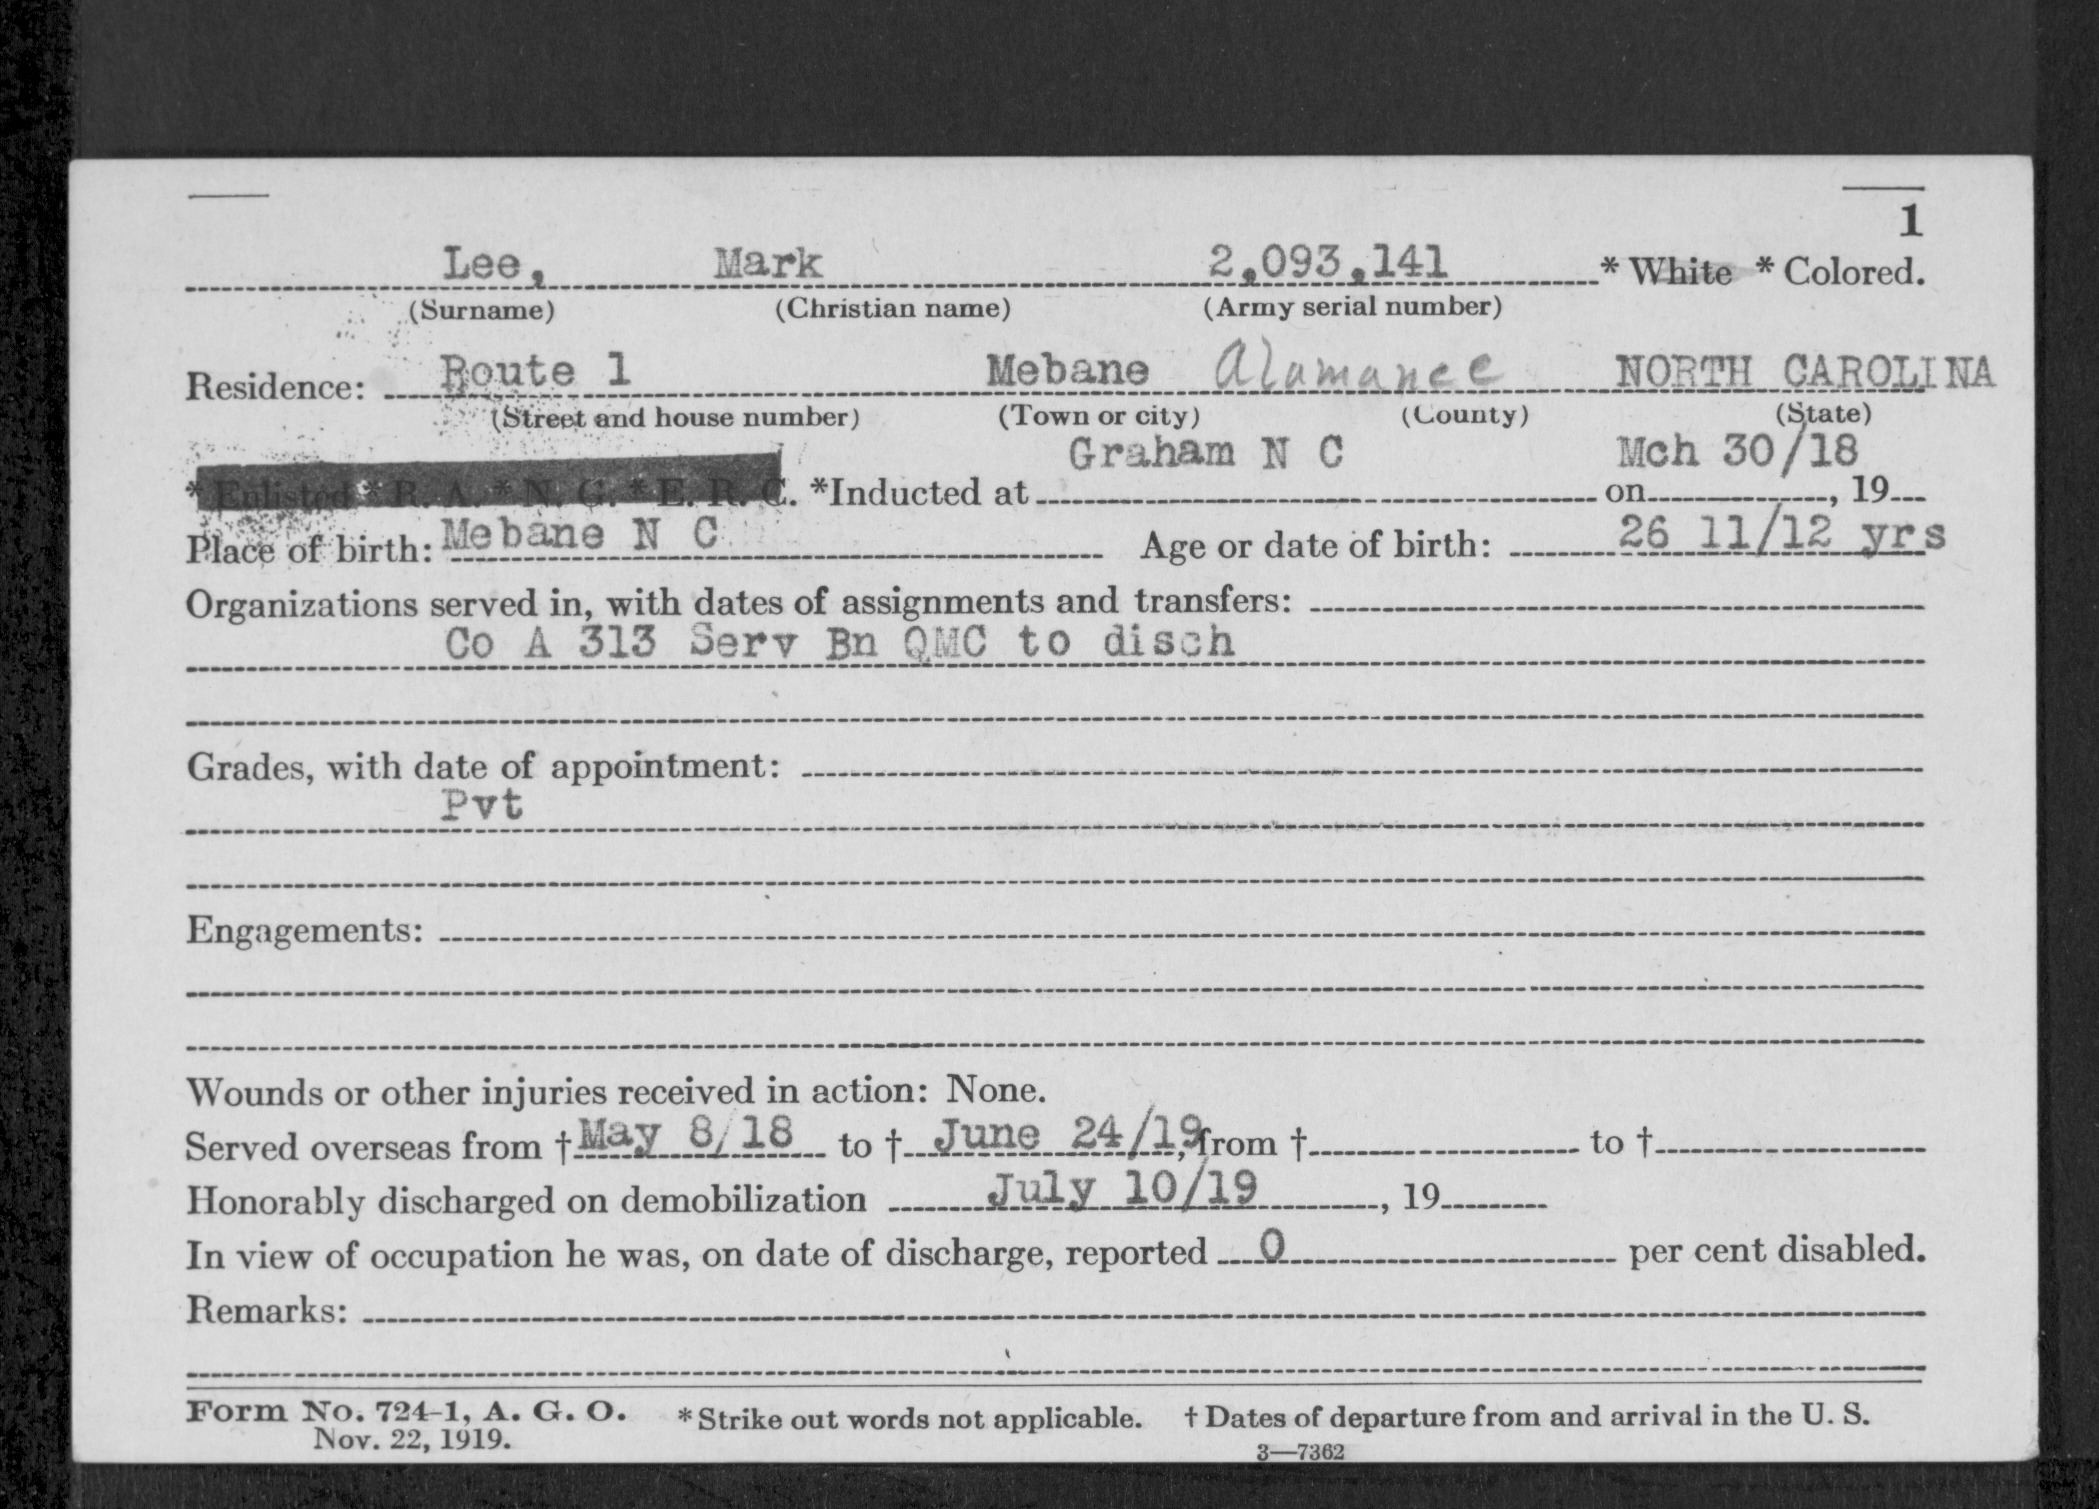 1
Lee, Mark 2,093,141 * White * Colored.
(Surname) (Christian name) (Army serial number)
Residence: Route 1 Mebane Alamance NORTH CAROLINA
(Street and house number) (Town or city) (County) (State)
Graham N C Mch 30/18
* Enlisted * R. A. * N. G. * E. R. C. *Inducted at on , 19
Place of birth: Mebane N C Age or date of birth: 26 11/12 yrs
Organizations served in, with dates of assignments and transfers:
Co A 313 Serv Bn QMC to disch
Grades, with date of appointment:
Pvt
Engagements:
Wounds or other injuries received in action: None.
Served overseas from † May 8/18 to † June 24/19, from † to †
Honorably discharged on demobilization July 10/19 , 19
In view of occupation he was, on date of discharge, reported 0 per cent disabled.
Remarks:
Form No. 724-1, A. G. O. * Strike out words not applicable. † Dates of departure from and arrival in the U. S.
Nov. 22, 1919.
3—7362